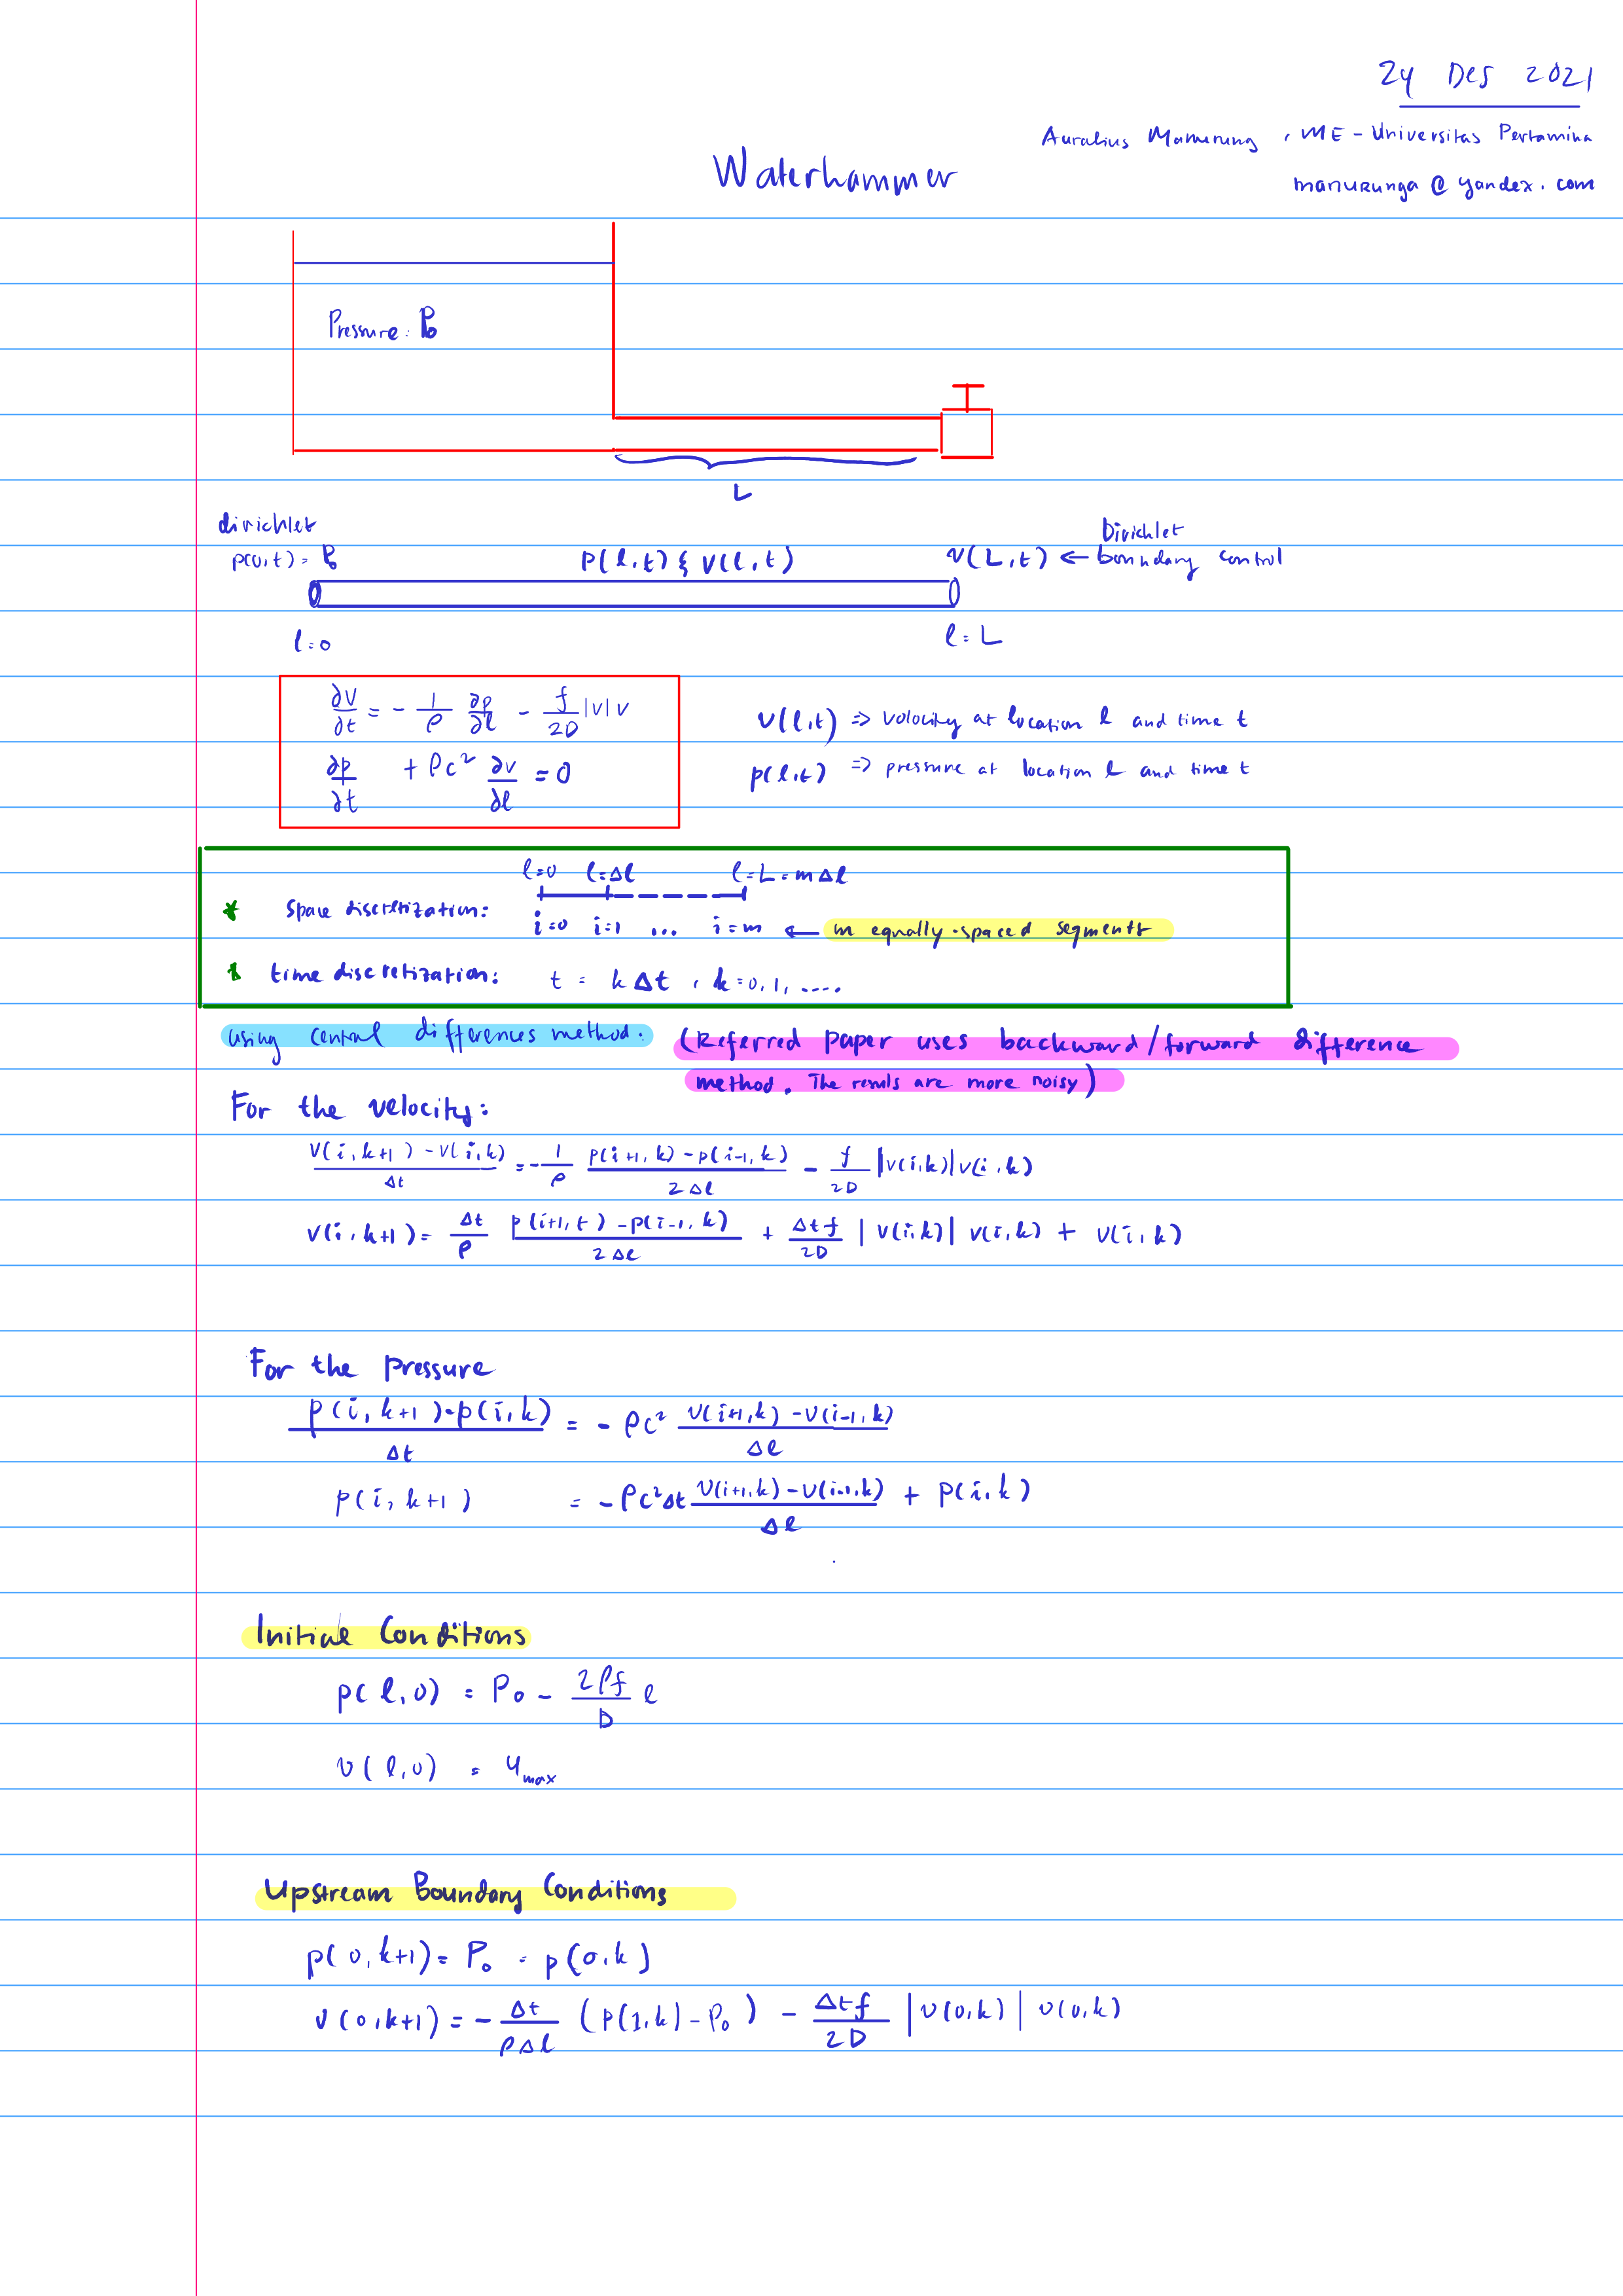 24 Des 2021
Auralius Manurung, ME - Universitas Pertamina
Waterhammer
manurunga@yandex.com
Pressure: P₀
L
dirichlet
p(0,t) = P₀
p(l,t) & v(l,t)
Dirichlet
v(L,t) ← boundary control
l=0
l = L
∂v/∂t = - 1/ρ ∂p/∂l - f/2D |v| v
∂p/∂t + ρc² ∂v/∂l = 0
v(l,t) => velocity at location l and time t
p(l,t) => pressure at location l and time t
l=0 l=Δl l=L=mΔl
* Space discretization:
i=0 i=1 ... i=m ← m equally-spaced segments
* time discretization: t = kΔt, k=0,1,....
using central differences method: (Referred paper uses backward/forward difference
method. The results are more noisy)
For the velocity:
(v(i,k+1) - v(i,k))/Δt = -1/ρ (p(i+1,k) - p(i-1,k))/2Δl - f/2D |v(i,k)| v(i,k)
v(i,k+1) = Δt/ρ (p(i+1,t) - p(i-1,k))/2Δl + Δtf/2D |v(i,k)| v(i,k) + v(i,k)
For the pressure
(p(i,k+1)-p(i,k))/Δt = - ρc² (v(i+1,k) - v(i-1,k))/Δl
p(i,k+1) = - ρc²Δt (v(i+1,k) - v(i-1,k))/Δl + p(i,k)
Initial Conditions
p(l,0) = P₀ - 2ρf/D l
v(l,0) = u max
Upstream Boundary Conditions
p(0,k+1) = P₀ = p(0,k)
v(0,k+1) = - Δt/ρΔl (p(1,k) - P₀) - Δtf/2D |v(0,k)| v(0,k)